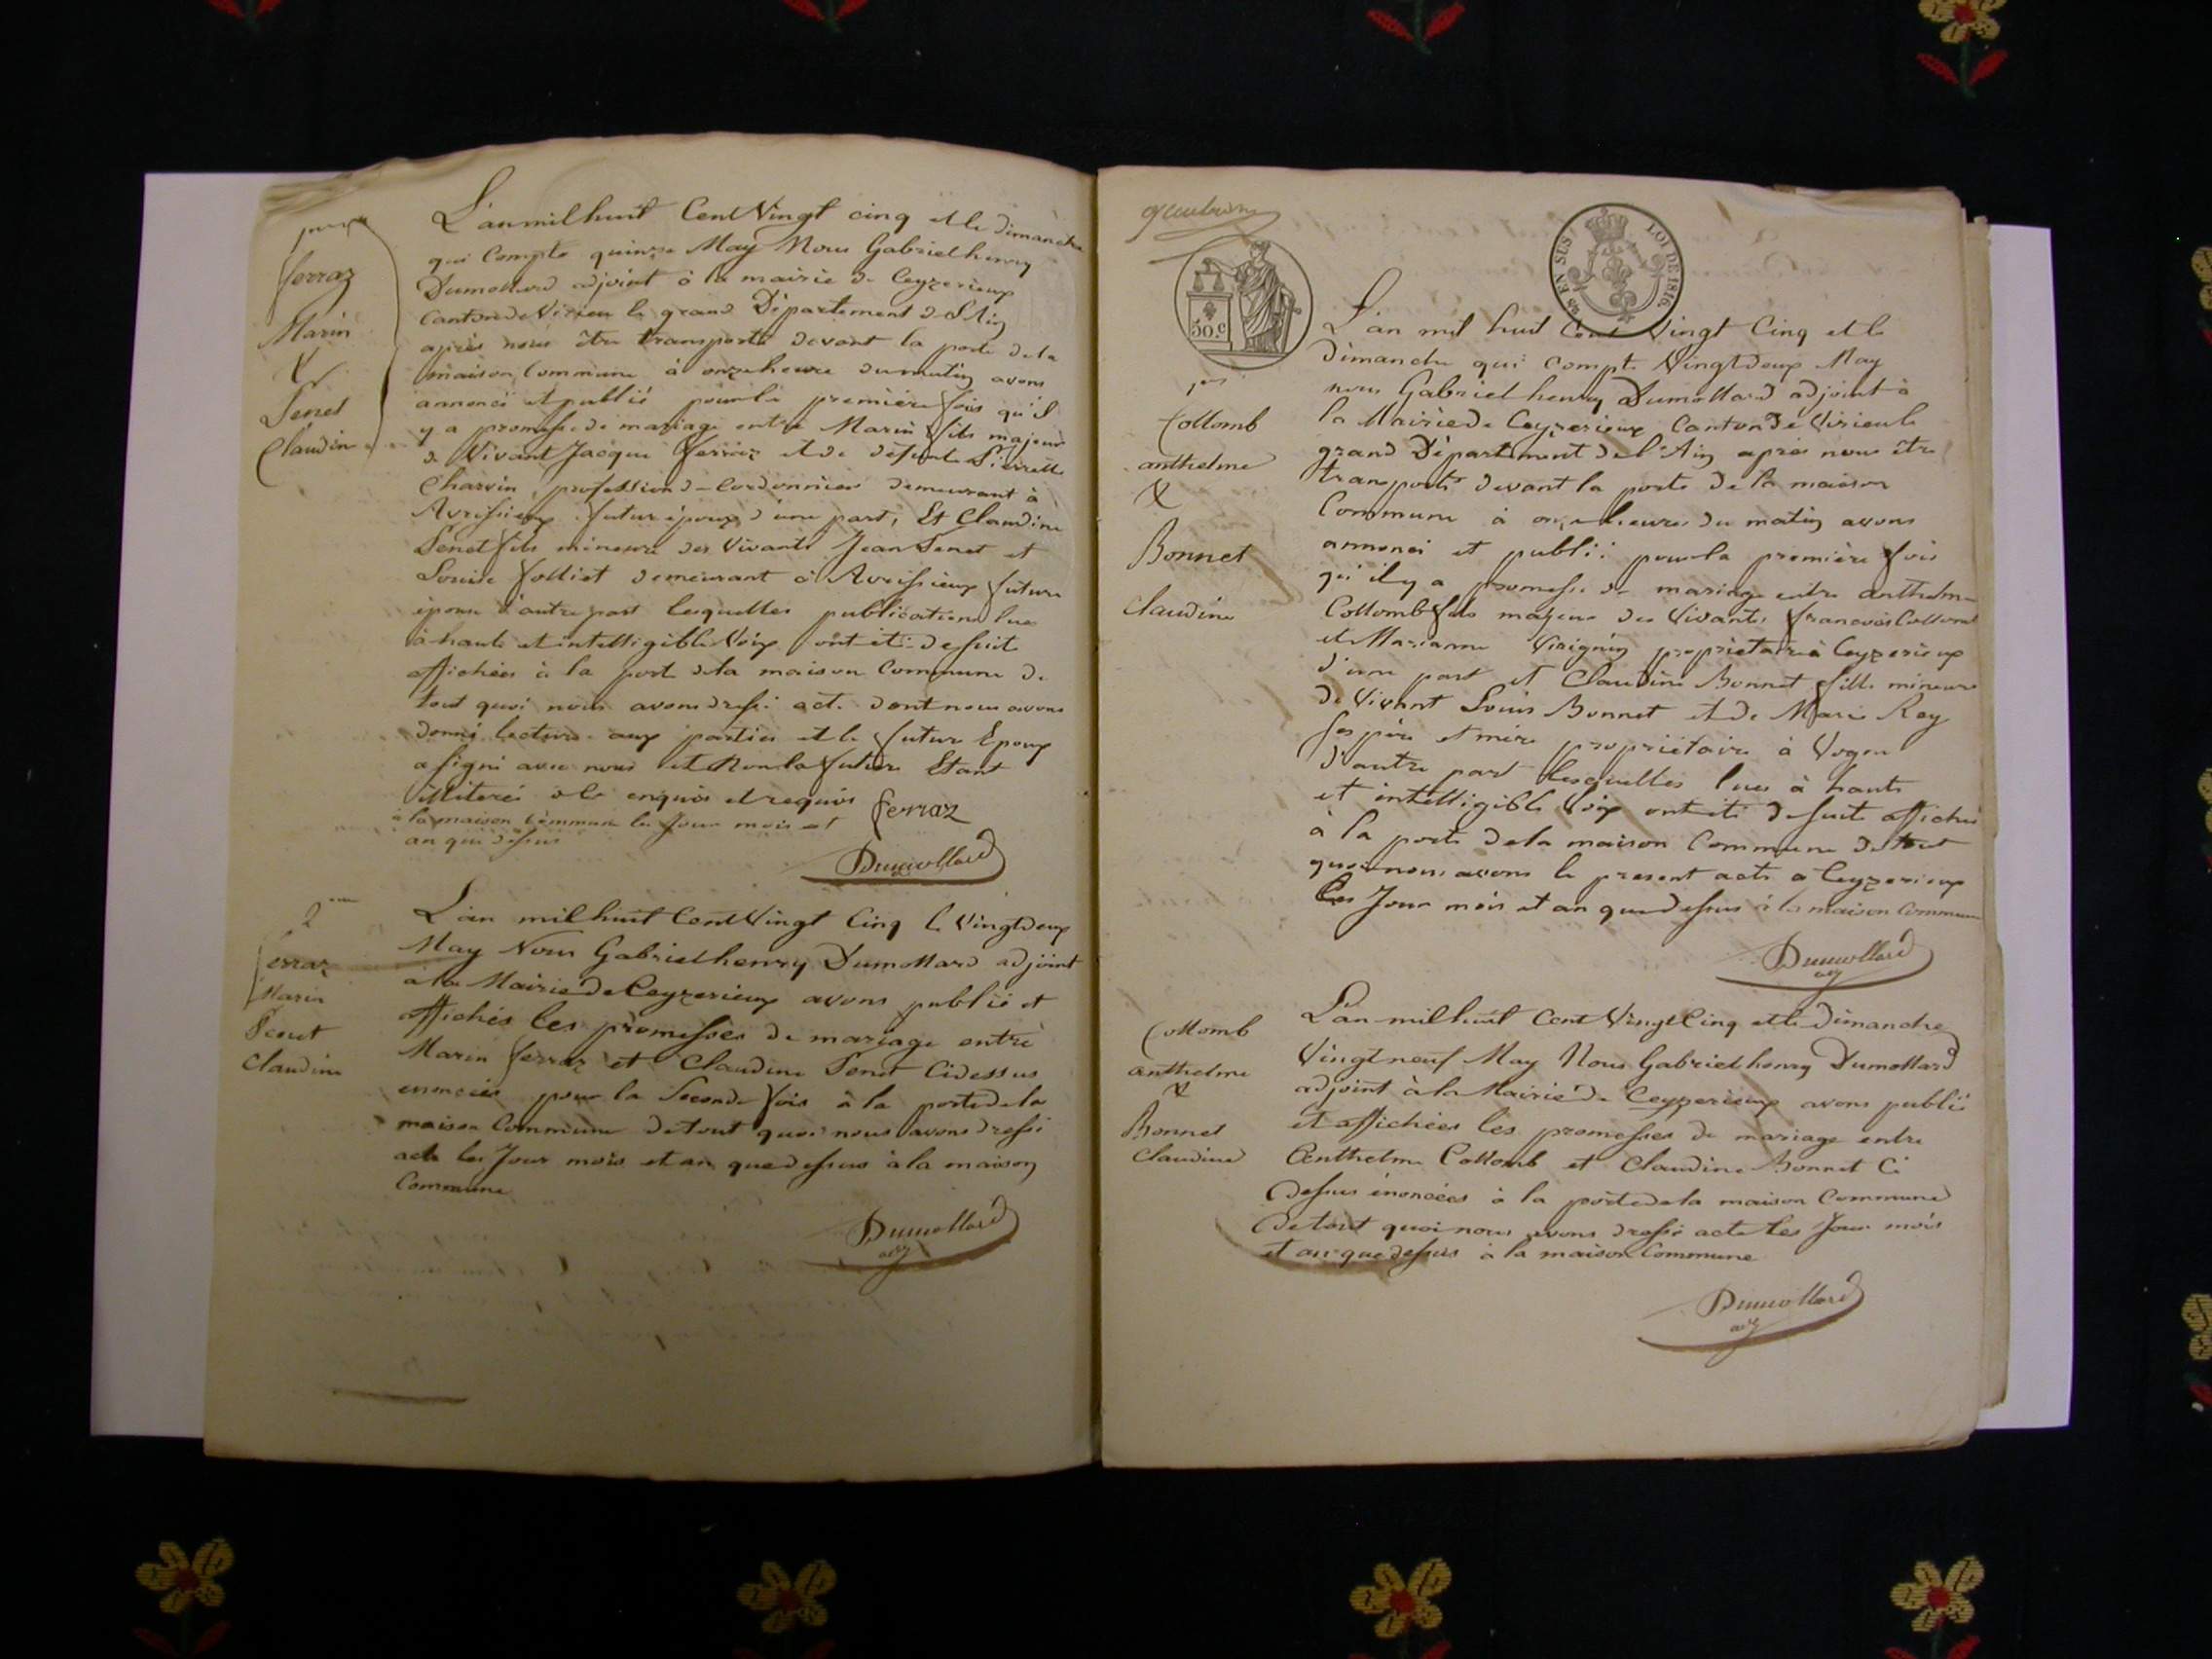 L'an mil huit Cent Vingt cinq et le dimanche
qui Compte quinze May Nous Gabriel henry
Dumollard adjoint à la mairie de Ceyzerieux
Canton de Virieu le grand Département de l'Ain
après nous être transporté devant la porte de la
maison Commune à onze heure du matin avons
annoncé et publié pour la première fois qu'il
y a promesse de mariage entre Marin fils majeur
de Vivant Jacque Ferraz et de défunte Pierrette
Charvin, profession de Cordonnier demeurant à
Avressieux futur époux d'une part, Et Claudine
Penet fille mineure des Vivants Jean Penet et
Louise Folliet demeurant à Avressieux future
épouse d'autre part lesquelles publications lue
à haute et intelligible Voix ont été de suite
affichées à la porte de la maison Commune de
tout quoi nous avons dressé acte dont nous avons
donné lecture aux parties et le futur Epoux
a signé avec nous et Non la future Etant
illiteré de le enquis et requis
à la maison Commune les Jour mois et
an que dessus
ferraz
Dumollard
ferraz
Marin
&
Penet
Claudine
L'an mil huit Cent Vingt Cinq le Vingt deux
May Nous Gabriel henry Dumollard adjoint
à la Mairie de Ceyzerieux avons publié et
affichés les promesses de mariage entre
Marin ferraz et Claudine Penet Cidessus
énoncées pour la Seconde fois à la porte de la
maison Commune de tout quoi nous avons dressé
acte les Jour mois et an que dessus à la maison
Commune
Dumollard
adj
2eme
ferraz
Marin
Penet
Claudine
50.c
EN SUS
LOI DE 1816.
L'an mil huit Cent Vingt Cinq et le
dimanche qui compte Vingt deux May
nous Gabriel henry Dumollard adjoint à
la Mairie de Ceyzerieux Canton de Virieu le
grand Département de l'Ain après nous être
transporté devant la porte de la maison
Commune à onze heures du matin avons
annoncé et publié pour la première fois
qu'il y a promesse de mariage entre anthelme
Collomb fils majeur des Vivants francois Collomb
et Marianne Virignin propriétaire à Ceyzerieux
d'une part et Claudine Bonnet fille mineure
de Vivant Louis Bonnet et de Marie Rey
ses père et mère propriétaire à Vogeu
d'autre part lesquelles lues à haute
et intelligible Voix ont été de suite affiché
à la porte de la maison Commune de tout
quoi nous avons le present acte a Ceyzerieux
les Jour mois et an que dessus à la maison Commune
Dumollard
adj
1ere
Collomb
anthelme
&
Bonnet
Claudine
L'an mil huit Cent Vingt Cinq et le Dimanche
Vingt neuf May Nous Gabriel henry Dumollard
adjoint à la Mairie de Ceyzerieux avons publié
et affichées les promesses de mariage entre
Anthelme Collomb et Claudine Bonnet Ci
dessus énoncées à la porte de la maison Commune
De tout quoi nous avons dressé acte les Jour mois
et an que dessus à la maison Commune
Dumollard
adj
Collomb
anthelme
&
Bonnet
Claudine